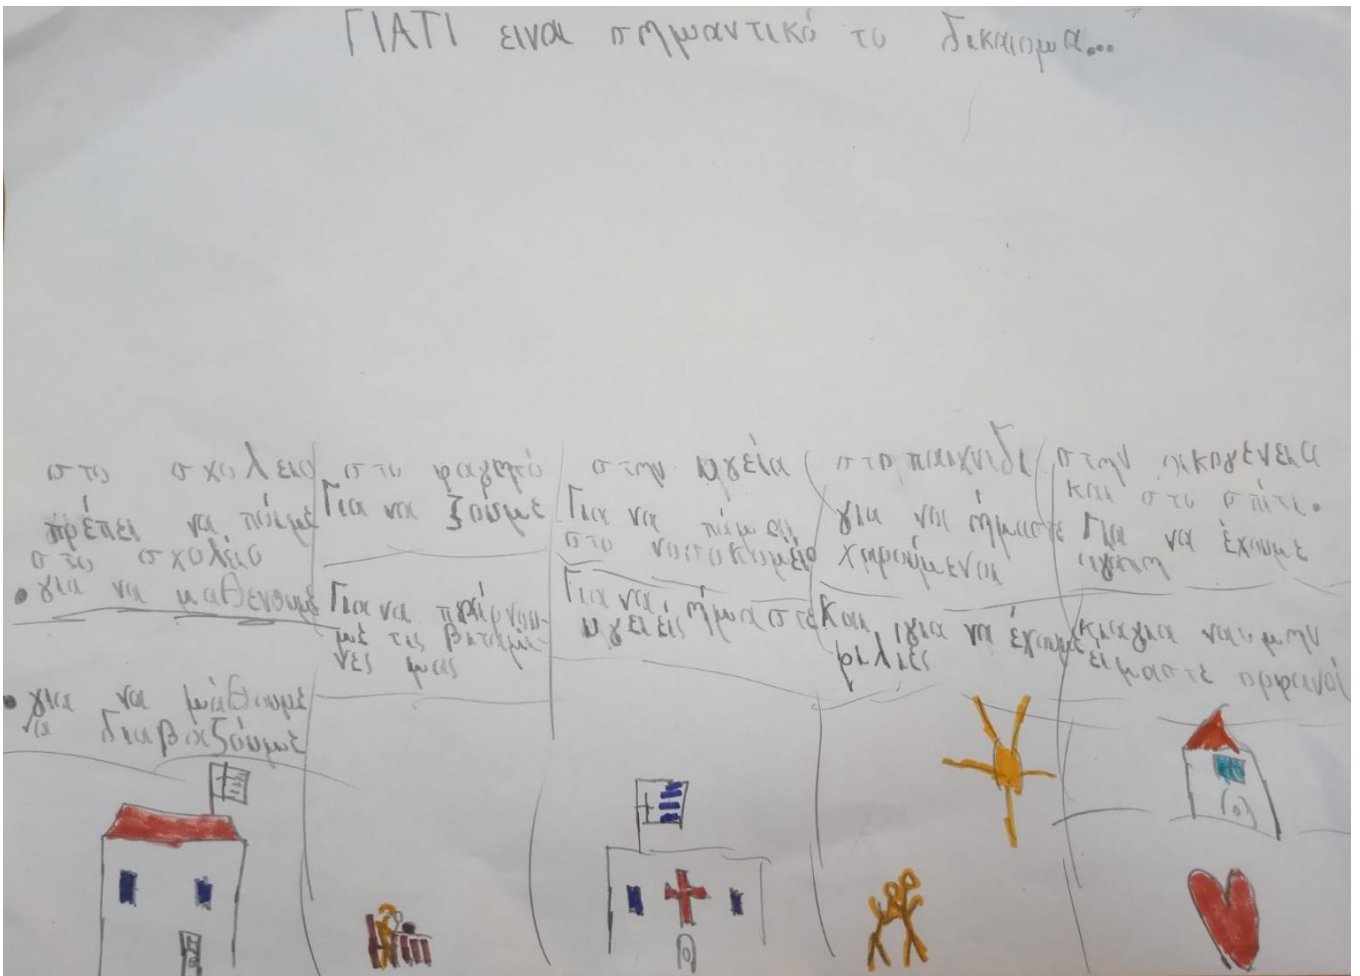 ΓΙΑΤΙ ειναι σημαντικό το δικαιωμα...
στο σχολειο
πρέπει να πάμε
στο σχολείο
• για να μαθενουμε
• για να μάθουμε
να διαβάζουμε
στο φαγητό
Για να ζουμε
Για να παίρνου-
με τις βιταμί-
νες μας
στην υγεία
Για να πάμε
στο νοσοκομείο
Για να ήμαστε
υγειείς
στο παιχνιδι
για να ήμαστε
χαρούμενοι
Και για να έχουμε
φιλιες
στην οικογένεια
και στο σπίτι.
Για να έχουμε
αγάπη
και για να μην
ειμαστε ορφανοί